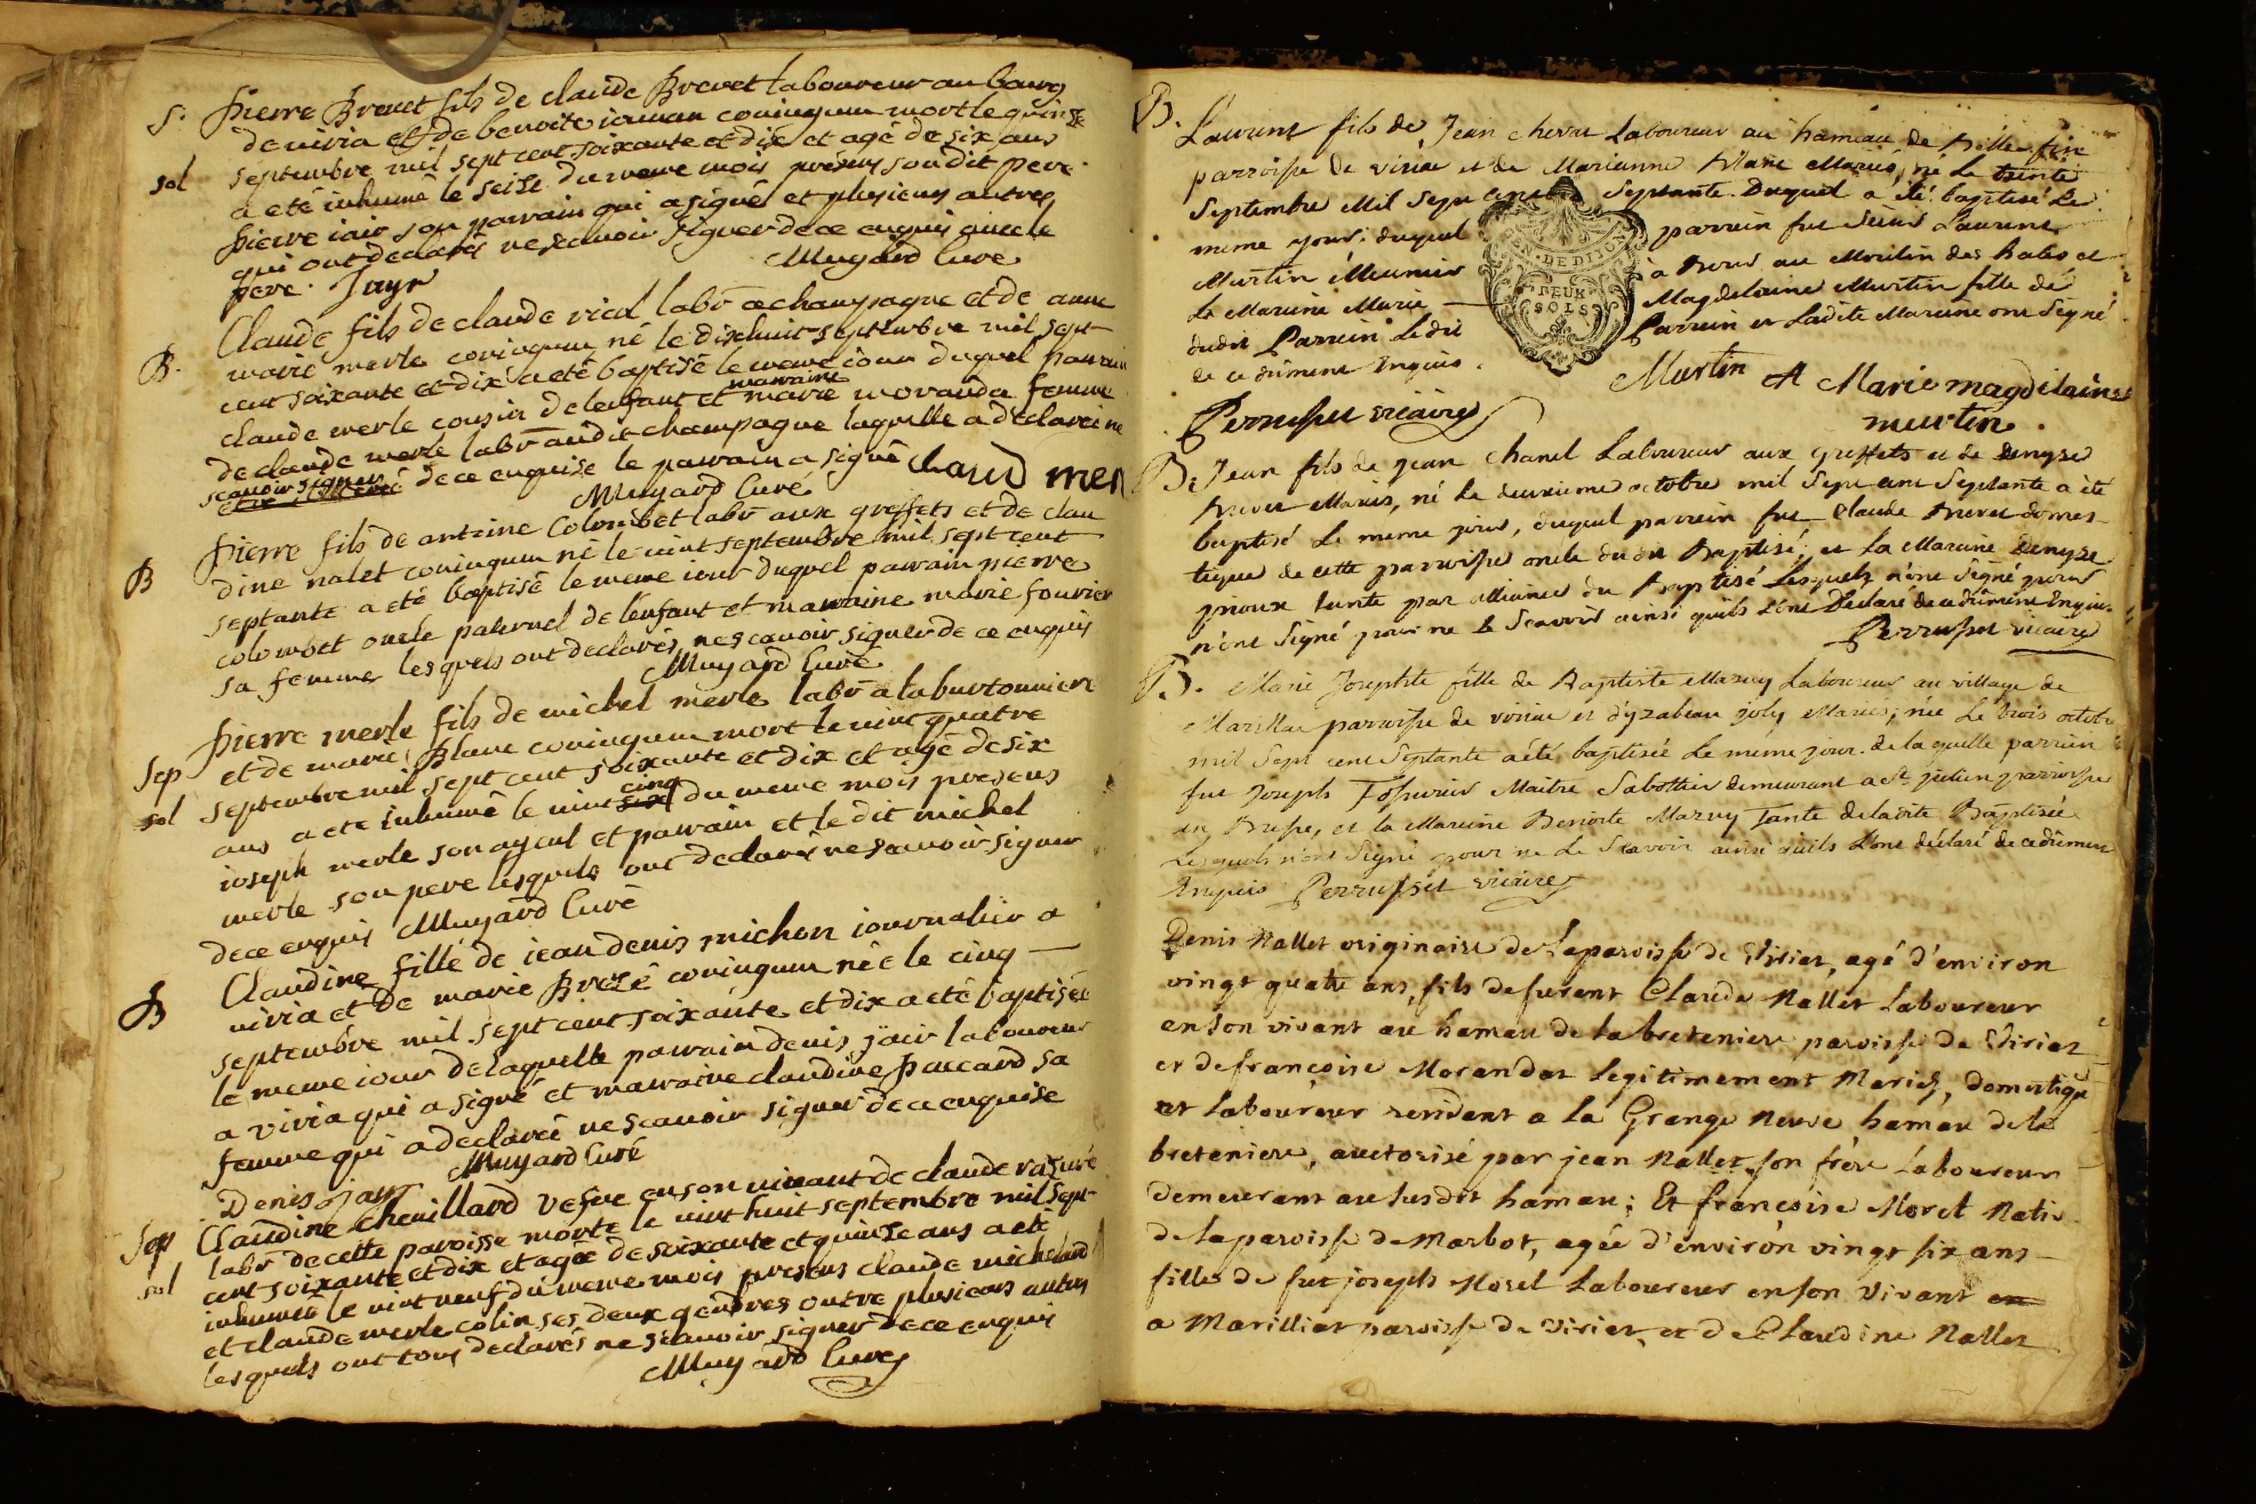 S. pierre Brevet fils de claude Brevet laboureur au bourg
de viria et de benoite coniugum mort le quinze
sol septembre mil sept cent soixante et dix et agé de six ans
a eté inhumé le seise du meme mois présens son dit pere
pierre iair son parrain qui a signé et plusieurs autres
qui ont declarés ne scavoir signer de ce enquis avec le
pere. Jayr Muyard Curé
Claude fils de claude vial labr a champagne et de anne
B. marie merle coniugum né le dixhuit septembre mil sept
cent soixante et dix a eté baptisé le meme iour duquel parrain
claude merle cousin de lenfant et marraine marie moranda femme
de claude merle labr audit champagne laquelle a déclaré ne
scavoir signer de ce enquise le parrain a signé Claud mer
Muyard Curé
pierre fils de antoine Colombet labr aux greffets et de clau
B dine nalet coniugum né le vint septembre mil sept cent
septante a eté baptisé le meme iour duquel parrain pierre
colombet oncle paternel de lenfant et marraine marie fourier
sa femme lesquels ont declarés ne scavoir signer de ce enquis
Muyard Curé
pierre merle fils de michel merle labr a la burtonniere
Sep et de marie Blanc coniugum mort le vint quatre
sol septembre mil sept cent soixante et dix et agé de six
ans a eté inhumé le vint six cinq du meme mois presens
ioseph merle son ayeul et parrain et le dit michel
merle son pere lesquels ont declarés ne scavoir signer
de ce enquis Muyard Curé
Claudine fille de iean denis michon iournalier a
B viria et de marie Brezé coniugum née le cinq
septembre mil sept cent soixante et dix a eté baptisée
le meme iour de laquelle parrain denis jair laboureur
a viria qui a signé et marraine claudine paccard sa
femme qui a declaré ne scavoir signer de ce enquise
Denis jayr Muyard Curé
Sep Claudine Chevillard vefve en son vivant de claude rasuré
labr de cette paroisse morte le vint huit septembre mil sept
sol cent soixante et dix et agée de soixante et quinze ans a eté
inhumée le vint neuf du meme mois presens claude michelard
et claude merle colin ses deux gendres outre plusieurs autres
lesquels ont tous declarés ne scavoir signer de ce enquis
Muyard Curé
B. Laurent fils de Jean chevat Laboureur au hameau de
parroisse de viriac et de Marianne Mariés, né Le trente
Septembre Mil Sept cent Septante. Duquel a été baptisé Le
meme jour. duquel parrain fut Sieur Laurent
Martin Meunier au Moulin des hales et
La Maraine Marie — Magdelaine Martin fille de
dudit Parrain. Ledit Parrain et Ladite Maraine ont Signé
de ce dûment Enquis.
Martin M Marie magdelaine
Perrusset vicaire
martin.
B. Jean fils de jean Chanel Laboureur aux greffets et de denyse
Brevet Mariés, né Le deuxieme octobre mil Sept cent Septante a été
baptisé Le meme jour, duquel parrain fut Claude Brevet domes-
tique de cette parroisse oncle dudit Baptisé; et La Maraine Denyse
pioux tante par alliance du Baptisé Lesquels n'ont Signé pour
n'ont Signé pour ne Le Scavoir ainsi quils L'ont Declaré de ce dûment Enquis.
Perrusset vicaire
B. Marie Josephte fille de Baptiste Marvy Laboureur au village de
Marillac parroisse de viriac et d'yzabeau joly Mariés, née Le trois octobre
mil Sept cent Septante a été baptisée Le meme jour. de laquelle parrain
fut joseph Maitre Sabottier demeurant a St julien parroisse
en Bresse, et la Maraine Benoite Marvy Tante de ladite Baptisée
Lesquels n'ont Signé pour ne Le Scavoir ainsi quils L'ont déclaré de ce dûment
Enquis Perrusset vicaire
Denis Nallet originaire de La paroisse de Viriat, agé d'environ
vingt quatre ans, fils de furent Claude Nallet Laboureur
en son vivant au hameau de la breteniere paroisse de Viriat
et de françoise Morandat Legitimement Mariés, Domestique
et Laboureur resident a la Grange neuve hameau de la
breteniere, auctorisé par jean Nallet son frère Laboureur
demeurant au susdit hameau; Et françoise Morel Native
de la paroisse de Marbot, agée d'environ vingt six ans
fille de fut joseph Morel Laboureur en son vivant en
a Marilliat paroisse de Viriat, et de Claudine Nallet
GEN. DE DIJON
DEUX
SOLS